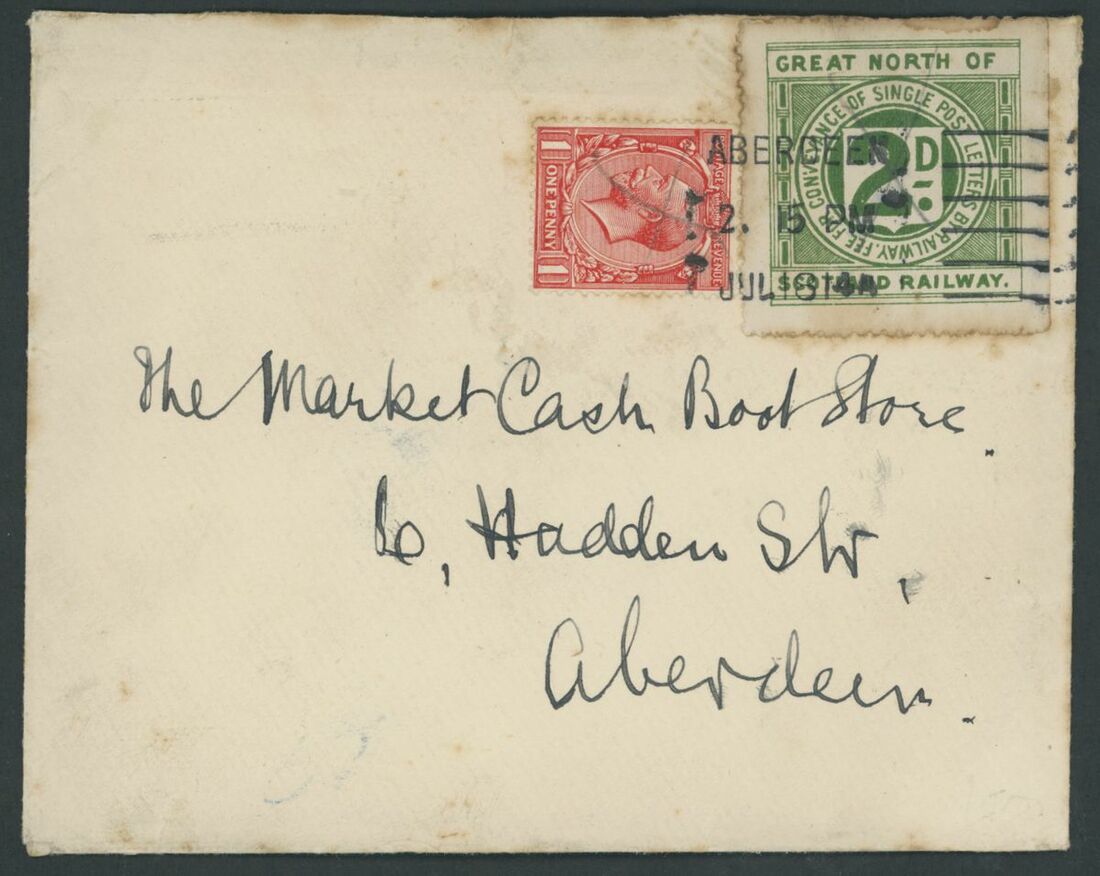 GREAT NORTH OF
FEE FOR CONVEYANCE OF SINGLE POST LETTERS BY RAILWAY.
2D.
SCOTLAND RAILWAY.
POSTAGE REVENUE
ONE PENNY
1 1
ABERDEEN
2. 15 PM
JUL
The Market Cash Boot Store.
6, Hadden Str,
Aberdeen.